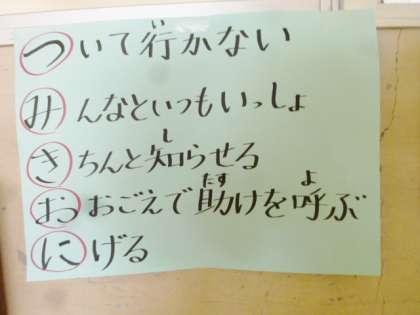 ついて行かない
みんなといつもいっしょ
きちんと知らせる
おおごえで助けを呼ぶ
にげる